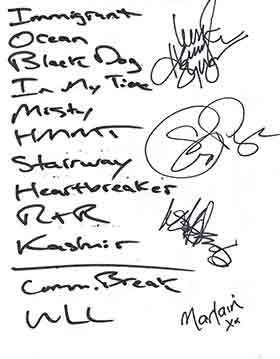 Immigrant
Ocean
Black Dog
In My Time
Misty
HMMT
Stairway
Heartbreaker
R+R
Kashmir
Comm. Break
WLL
Martain
xx